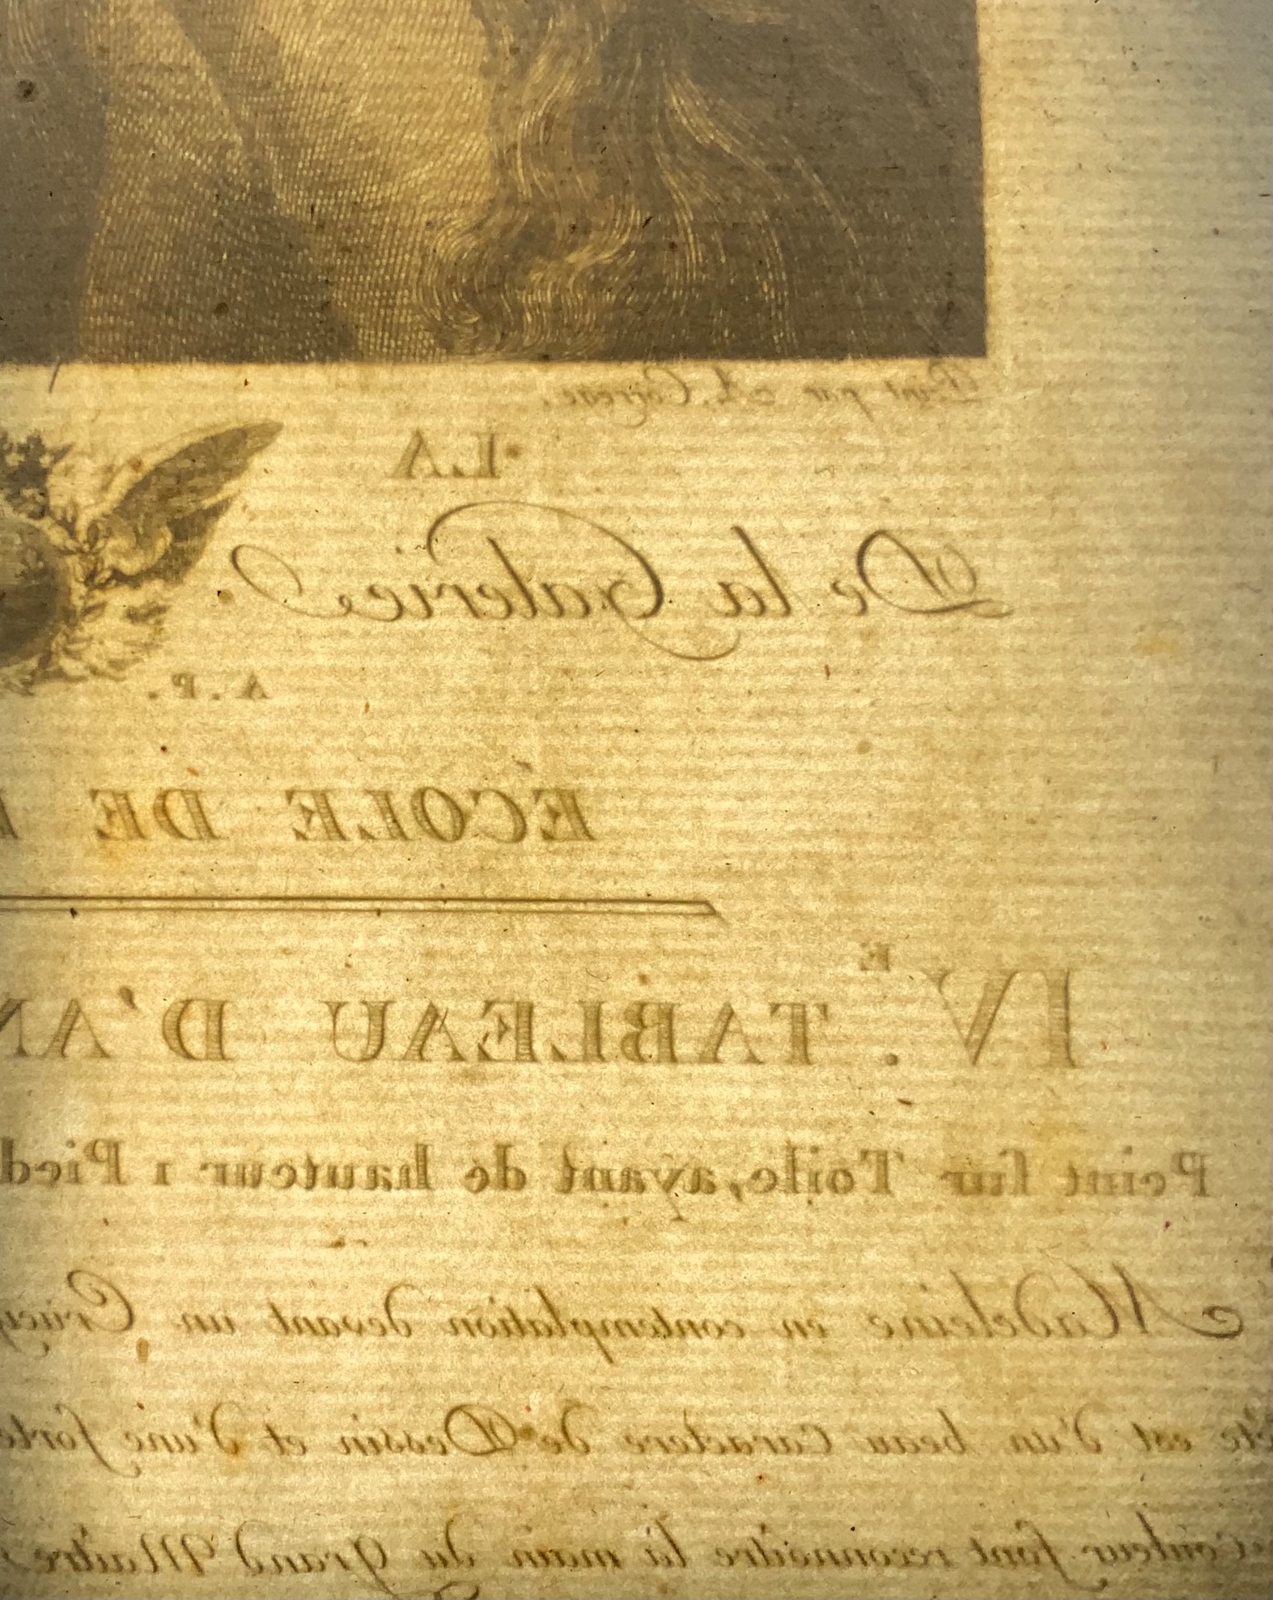 Peint par A. Coregge.
LA
De la Galerie
A.P.
ÉCOLE DE
IV.E TABLEAU D'AN
Peint sur Toile, ayant de hauteur 1 Pied
Madeleine en contemplation devant un Crucif
tête est d'un beau Caractere de Dessin et d'une forte
Couleur font reconnoître la main du grand Maître